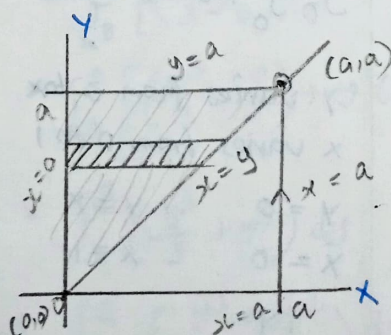 Y
y = a
(a, a)
a
x = 0
x = y
x = a
(0,0)
x = a
a
X